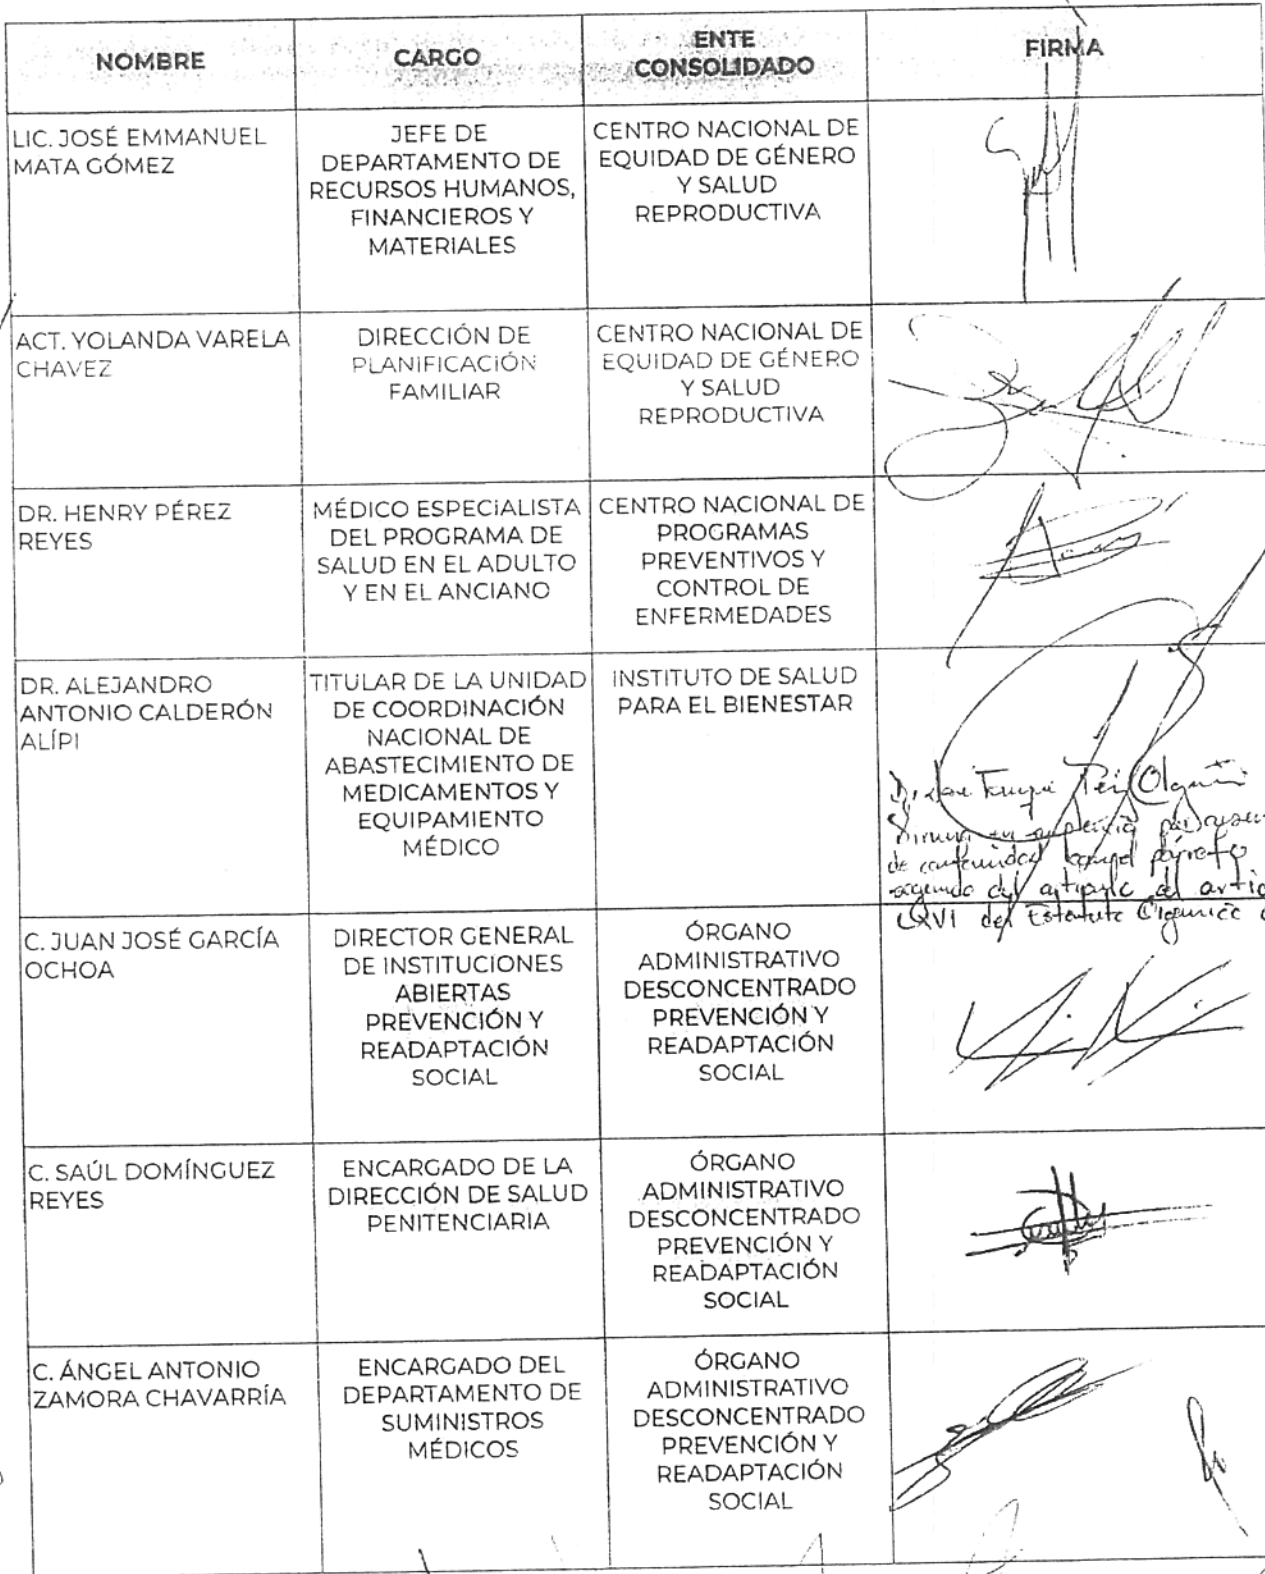 NOMBRE
CARGO
ENTE
CONSOLIDADO
FIRMA
LIC. JOSÉ EMMANUEL
MATA GÓMEZ
JEFE DE
DEPARTAMENTO DE
RECURSOS HUMANOS,
FINANCIEROS Y
MATERIALES
CENTRO NACIONAL DE
EQUIDAD DE GÉNERO
Y SALUD
REPRODUCTIVA
ACT. YOLANDA VARELA
CHAVEZ
DIRECCIÓN DE
PLANIFICACIÓN
FAMILIAR
CENTRO NACIONAL DE
EQUIDAD DE GÉNERO
Y SALUD
REPRODUCTIVA
DR. HENRY PÉREZ
REYES
MÉDICO ESPECIALISTA
DEL PROGRAMA DE
SALUD EN EL ADULTO
Y EN EL ANCIANO
CENTRO NACIONAL DE
PROGRAMAS
PREVENTIVOS Y
CONTROL DE
ENFERMEDADES
DR. ALEJANDRO
ANTONIO CALDERÓN
ALÍPI
TITULAR DE LA UNIDAD
DE COORDINACIÓN
NACIONAL DE
ABASTECIMIENTO DE
MEDICAMENTOS Y
EQUIPAMIENTO
MÉDICO
INSTITUTO DE SALUD
PARA EL BIENESTAR
de conformidad párrafo
segundo del
LXVI del Estatuto
C. JUAN JOSÉ GARCÍA
OCHOA
DIRECTOR GENERAL
DE INSTITUCIONES
ABIERTAS
PREVENCIÓN Y
READAPTACIÓN
SOCIAL
ÓRGANO
ADMINISTRATIVO
DESCONCENTRADO
PREVENCIÓN Y
READAPTACIÓN
SOCIAL
C. SAÚL DOMÍNGUEZ
REYES
ENCARGADO DE LA
DIRECCIÓN DE SALUD
PENITENCIARIA
ÓRGANO
ADMINISTRATIVO
DESCONCENTRADO
PREVENCIÓN Y
READAPTACIÓN
SOCIAL
C. ÁNGEL ANTONIO
ZAMORA CHAVARRÍA
ENCARGADO DEL
DEPARTAMENTO DE
SUMINISTROS
MÉDICOS
ÓRGANO
ADMINISTRATIVO
DESCONCENTRADO
PREVENCIÓN Y
READAPTACIÓN
SOCIAL